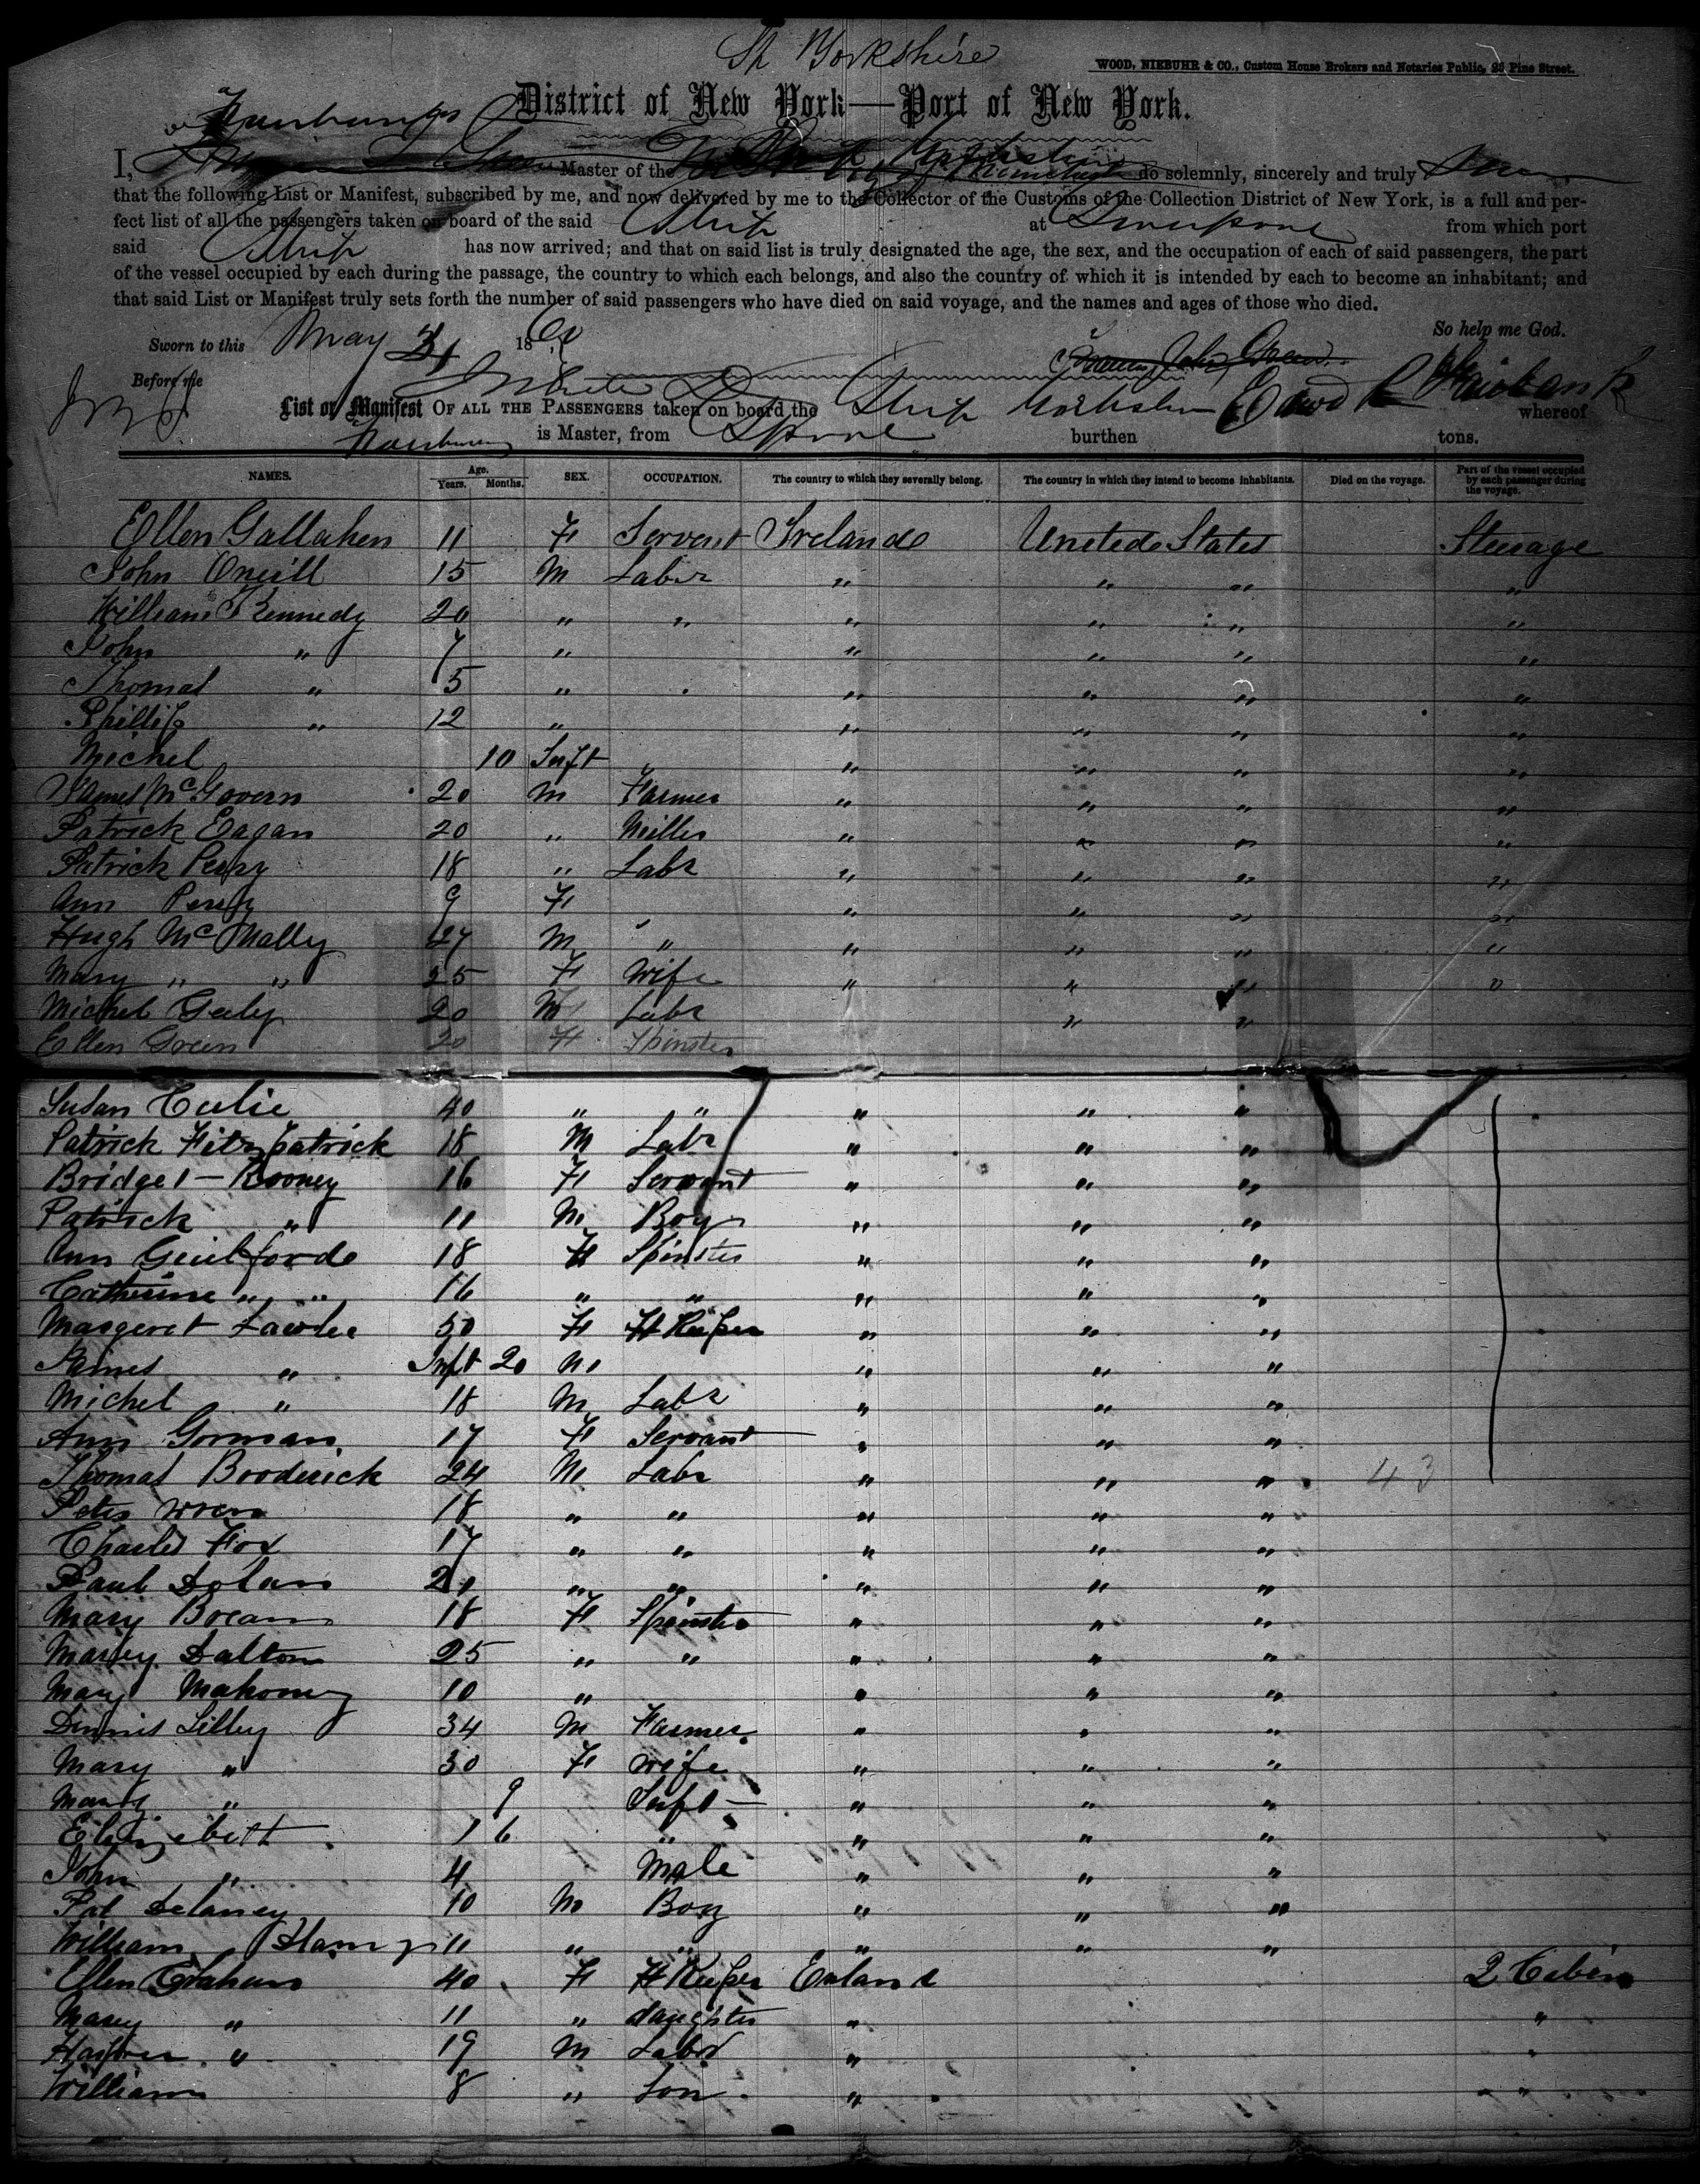 Sh Yorkshire
WOOD, NIEBUHR & CO., Custom House Brokers and Notaries Public, 26 Pine Street.
District of New York—Port of New York.
I, Master of the do solemnly, sincerely and truly
that the following List or Manifest, subscribed by me, and now delivered by me to the Collector of the Customs of the Collection District of New York, is a full and per-
fect list of all the passengers taken on board of the said Ship at Liverpool from which port
said Ship has now arrived; and that on said list is truly designated the age, the sex, and the occupation of each of said passengers, the part
of the vessel occupied by each during the passage, the country to which each belongs, and also the country of which it is intended by each to become an inhabitant; and
that said List or Manifest truly sets forth the number of said passengers who have died on said voyage, and the names and ages of those who died.
So help me God.
Sworn to this May 31 18
Before me
List or Manifest OF ALL THE PASSENGERS taken on board the Ship whereof
is Master, from burthen tons.
NAMES. Age. Years. Months. SEX. OCCUPATION. The country to which they severally belong. The country in which they intend to become inhabitants. Died on the voyage. Part of the vessel occupied by each passenger during the voyage.
Ellen Gallahen 11 F Servent Ireland United States Steerage
John Oneill 15 M Labr " " " "
William Kennedy 20 " " " " " "
John " 7 " " " " "
Thomas " 5 " " " " "
Phillip " 12 " " " " "
Michel 10 Inft " " " "
James McGovern 20 M Farmer " " " "
Patrick Eagan 20 " Miller " " " "
Patrick Perry 18 " Labr " " " "
Ann Perry 9 F " " " "
Hugh McNally 27 M " " " " "
Mary " " 25 F Wife " " " "
Michel Gealy 20 M Labr " " "
Ellen Green 20 F Spinster
Susan 40 " " " " "
Patrick Fitzpatrick 18 M Labr " " "
Bridget - Rooney 16 F Servant " " "
Patrick " 11 M Boy " " "
Ann Geulforde 18 F Spinster " " "
Catherine " " 16 " " " " "
Margeret Lawlee 50 F H Keeper " " "
James " Inft 20 M " " "
Michel " 18 M Labr " " "
Ann Gorman 17 F Servant " " "
Thomas Broderick 24 M Labr " " " 43
Peter Wren 18 " " " " "
Charles Fox 17 " " " " "
Paul Dolan 21 " " " " "
Mary Brean 18 F Spinster " " "
Mary Dalton 25 " " " " "
Mary Mahoney 10 " " " "
Dennis Lilley 34 M Farmer " " "
Mary " 30 F Wife " " "
Mary " 9 Inft " " "
Elizebett 1 6 " " " "
John " 4 Male " " "
Pat Delaney 10 M Boy " " "
William 11 " " " " "
Ellen Graham 40 F H Keeper Enland 2 Cabin
Mary " 11 " daughter " "
" 19 M Labor " "
William 8 " Son " "